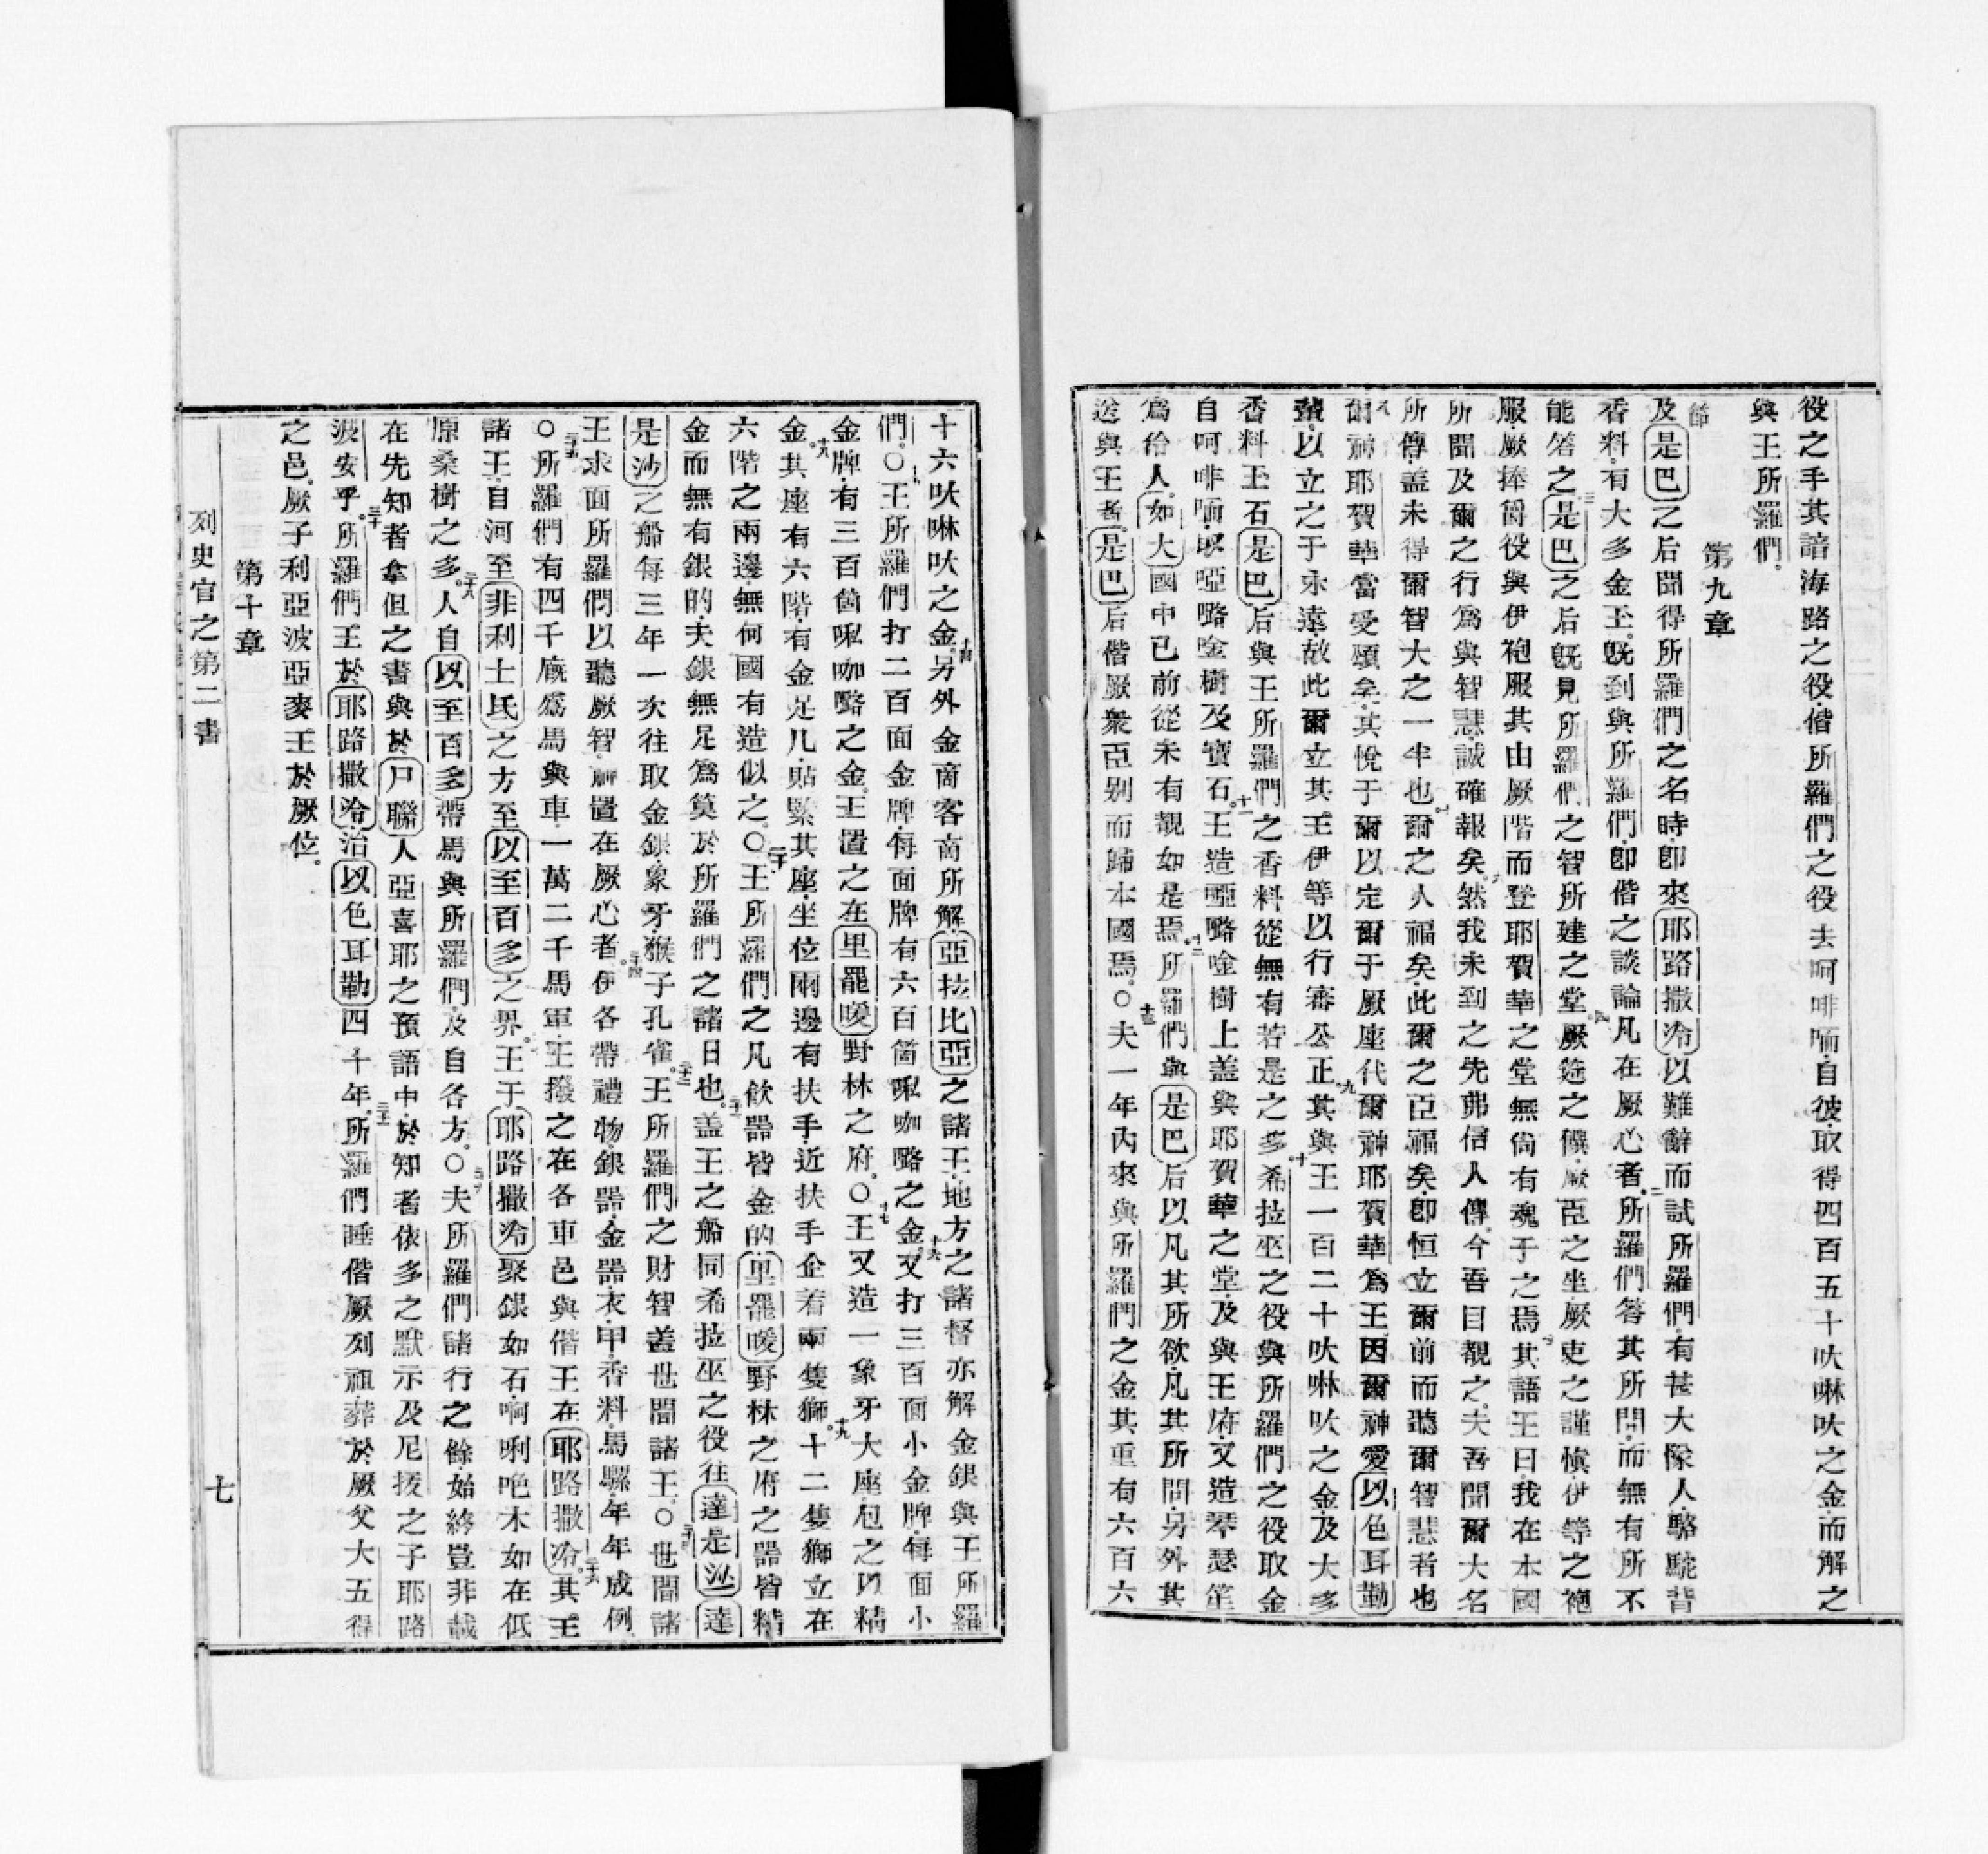 役之手其諳海路之役偕所羅們之役去呵啡喃自彼取得四百五十呔啉呔之金而解之
與王所羅們。
第九章
節
及是巴之后聞得所羅們之名時卽來耶路撒冷以難辭而試所羅們有甚大像人駱駝背
香料有大多金玉旣到與所羅們卽偕之談論凡在厥心者二所羅們答其所問而無有所不
能答之三是巴之后旣見所羅們之智所建之堂四厥筵之饌厥臣之坐厥吏之謹愼伊等之袍
服厥捧爵役與伊袍服其由厥階而登耶賀華之堂無尙有魂于之焉五其語王曰我在本國
所聞及爾之行爲與智慧誠確報矣六然我未到之先弗信人傳今吾目覩之夫吾聞爾大名
所傳蓋未得爾智大之一半也七爾之人福矣此爾之臣福矣卽恒立爾前而聽爾智慧者也
八爾神耶賀華當受頌矣其悅于爾以定爾于厥座代爾神耶賀華爲王因爾神愛以色耳勒
輩以立之于永遠故此爾立其王伊等以行審公正九其與王一百二十呔啉呔之金及大多
香料玉石是巴后與王所羅們之香料從無有若是之多十希拉巫之役與所羅們之役取金
自呵啡喃取啞嚕唫樹及寶石十一王造啞嚕唫樹上蓋與耶賀華之堂及與王府又造琴瑟笙
爲佁人如大國中已前從未有覩如是焉十二所羅們與是巴后以凡其所欲凡其所問另外其
送與王者是巴后偕厥衆臣别而歸本國焉。○十三夫一年內來與所羅們之金其重有六百六
十六呔啉呔之金十四另外金商客商所解亞拉比亞之諸王地方之諸督亦解金銀與王所羅
們。○十五王所羅們打二百面金牌每面牌有六百箇㖠咖嚟之金十六又打三百面小金牌每面小
金牌有三百箇㖠咖嚟之金王置之在里罷嗳野林之府。○十七王又造一象牙大座包之以精
金十八其座有六階有金足几貼緊其座坐位兩邊有扶手近扶手企着兩隻獅十九十二隻獅立在
六階之兩邊無何國有造似之。○二十王所羅們之凡飮器皆金的里罷嗳野林之府之器皆精
金而無有銀的夫銀無足爲算於所羅們之諸日也二十一蓋王之船同希拉巫之役往達是沙達
是沙之船每三年一次往取金銀象牙猴子孔雀二十二王所羅們之財智蓋世間諸王。○二十三世間諸
王求面所羅們以聽厥智神置在厥心者二十四伊各帶禮物銀器金器衣甲香料馬騾年年成例
○二十五所羅們有四千廐爲馬與車一萬二千馬軍王撥之在各車邑與偕王在耶路撒冷二十六其王
諸王自河至非利士氐之方至以至百多之界王于耶路撒冷聚銀如石啊唎𠰻木如在低
原桑樹之多二十八人自以至百多帶馬與所羅們及自各方。○二十九夫所羅們諸行之餘始終豈非載
在先知者拿但之書與於尸聯人亞喜耶之預語中於知者依多之默示及尼拔之子耶路
波安乎三十所羅們王於耶路撒冷治以色耳勒四十年三十一所羅們睡偕厥列祖葬於厥父大五得
之邑厥子利亞波亞麥王於厥位。
第十章
列史官之第二書
七